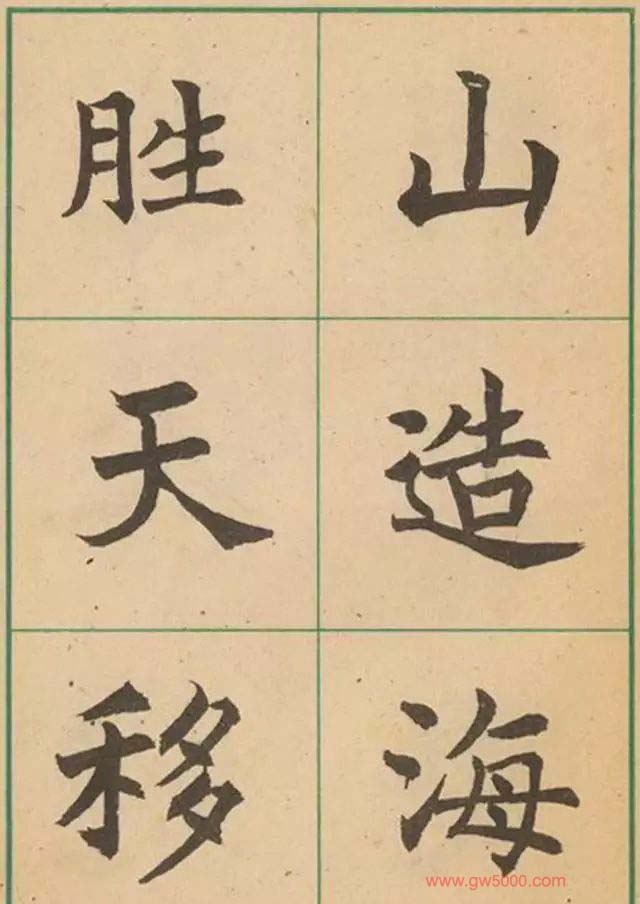 胜天移
山造海
www.gw5000.com